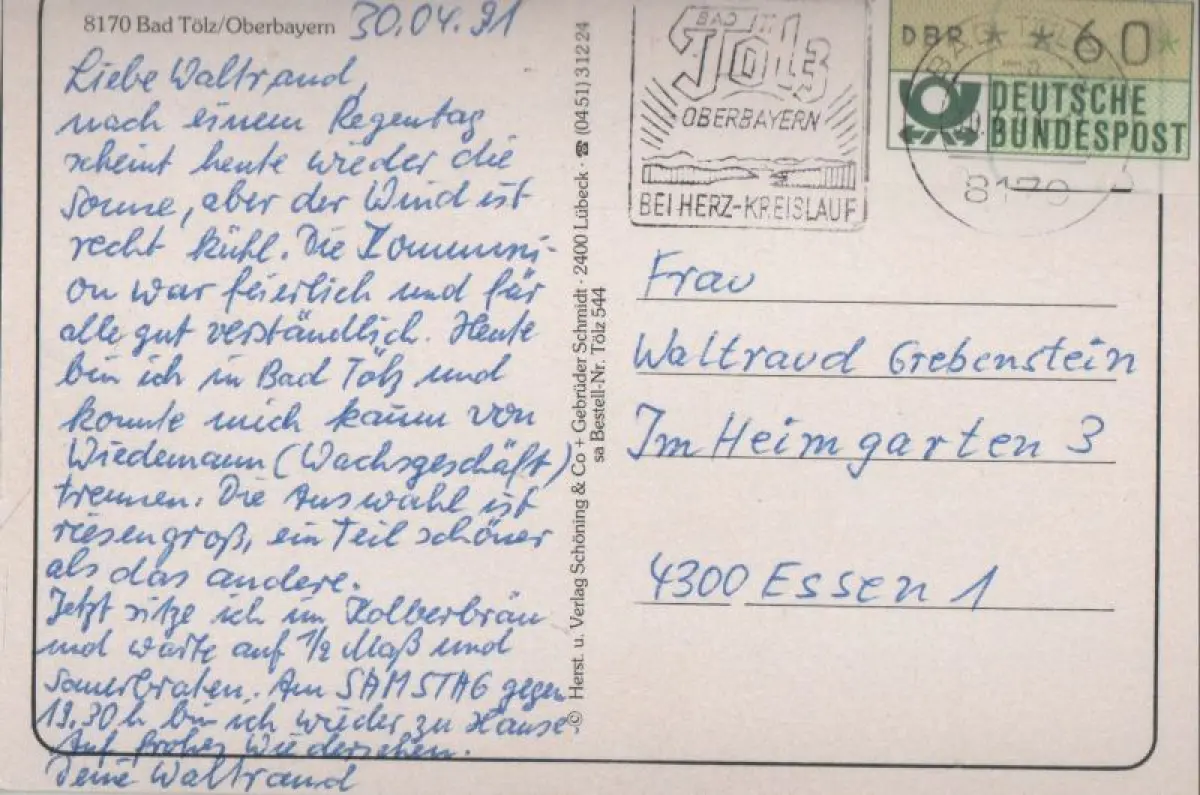 8170 Bad Tölz/Oberbayern
30.04.91
Liebe Waltraud,
nach einem Regentag
scheint heute wieder die
Sonne, aber der Wind ist
recht kühl. Die Kommuni-
on war feierlich und für
alle gut verständlich. Heute
bin ich in Bad Tölz und
konnte mich kaum von
Wiedemann (Wachsgeschäft)
trennen. Die Auswahl ist
riesengroß, ein Teil schöner
als das andere.
Jetzt sitze ich im Kolberbräu
und warte auf 1/2 Maß und
Sauerbraten. Am SAMSTAG gegen
19.30h bin ich wieder zu Hause.
Auf frohes Wiedersehen.
Deine Waltraud
© Herst. u. Verlag Schöning & Co + Gebrüder Schmidt · 2400 Lübeck · ☎ (04 51) 3 12 24
sa Bestell-Nr. Tölz 544
BAD IST
Tölz
OBERBAYERN
BEI HERZ-KREISLAUF
DBP * *60*
DEUTSCHE
BUNDESPOST
BAD TÖLZ
8170
Frau
Waltraud Grebenstein
Im Heimgarten 3
4300 Essen 1